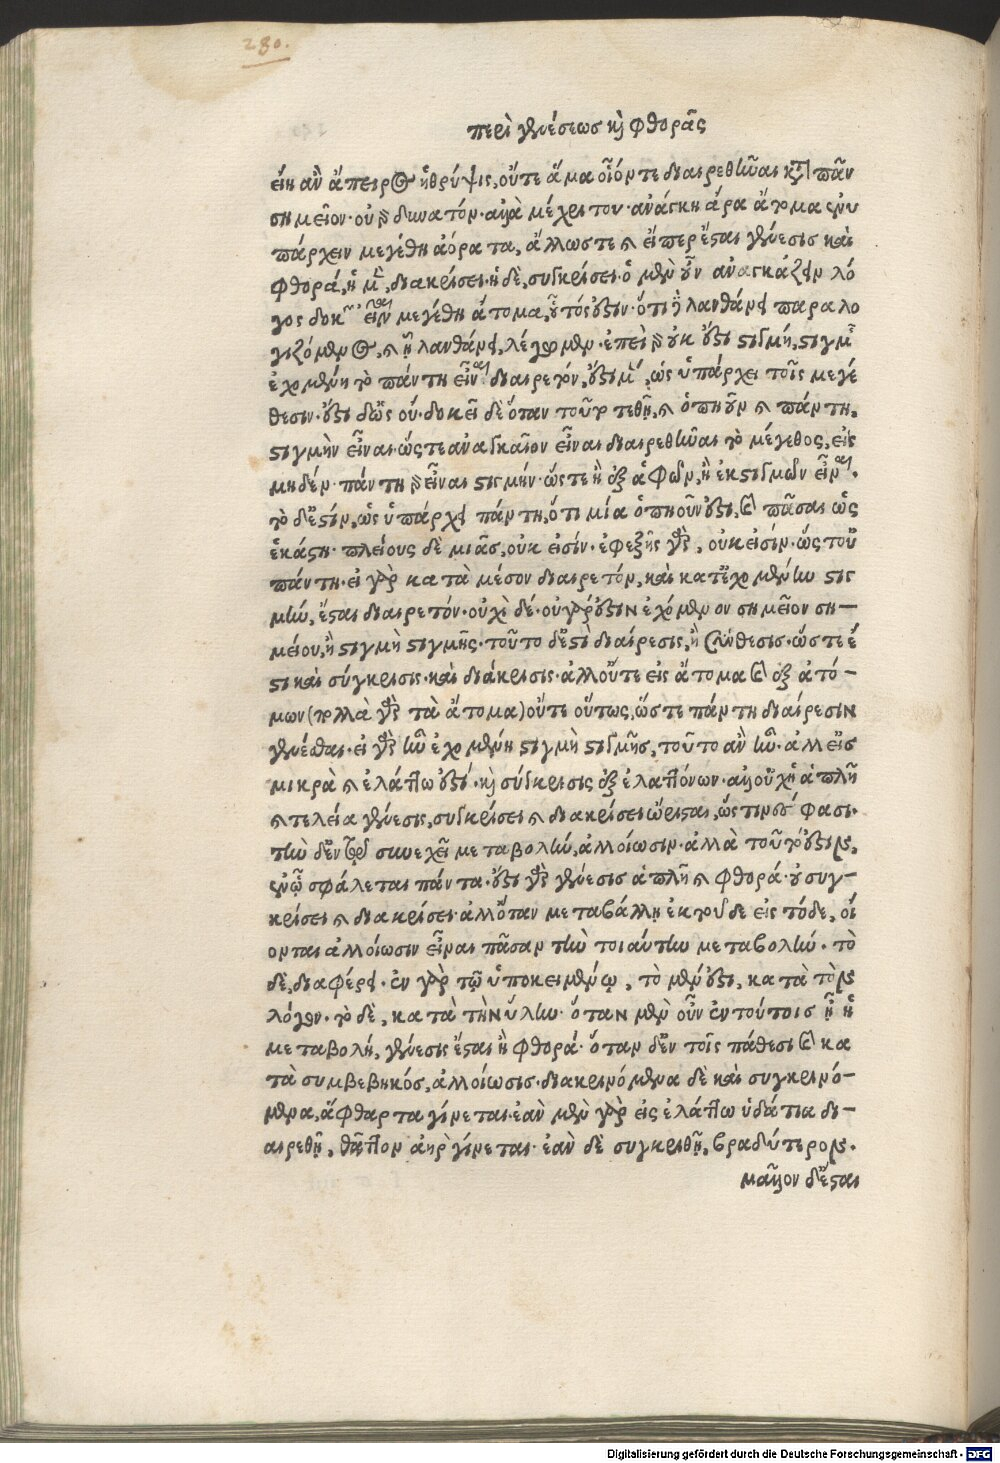 280.
περὶ γενέσεως καὶ φθορᾶς
εἴη ἂν ἄπειρος ἡ θρύψις, οὔτε ἅμα οἷόν τε διαιρεθῆναι κατὰ πᾶν
σημεῖον· οὐ γὰρ δυνατόν· ἀλλὰ μέχρι του· ἀνάγκη ἄρα ἄτομα ἐνυ
πάρχειν μεγέθη ἀόρατα, ἄλλως τε καὶ εἴπερ ἔσται γένεσις καὶ
φθορά, ἡ μὲν, διακρίσει· ἡ δὲ, συγκρίσει· ὁ μὲν οὖν ἀναγκάζειν λό
γος δοκῶν εἶναι μεγέθη ἄτομα, οὗτός ἐστιν· ὅτι δὲ λανθάνει παραλο
γιζόμενος, καὶ ᾗ λανθάνει, λέγωμεν· ἐπεὶ γὰρ οὐκ ἔστι στιγμή, στιγμῆς
ἐχομένη τὸ πάντη εἶναι διαιρετόν, ἔστι μὲν, ὡς ὑπάρχει τοῖς μεγέ
θεσιν· ἔστι δ' ὡς οὔ· δοκεῖ δὲ ὅταν τοῦτο τεθῇ, καὶ ὁπηοῦν καὶ πάντη,
στιγμὴν εἶναι· ὥστε ἀναγκαῖον εἶναι διαιρεθῆναι τὸ μέγεθος, εἰς
μηδέν· πάντη γὰρ εἶναι στιγμήν· ὥστε ἢ ἐξ ἁφῶν, ἢ ἐκ στιγμῶν εἶναι.
τὸ δ' ἔστιν, ὡς ὑπάρχει πάντη, ὅτι μία ὁπηοῦν ἐστι, καὶ πᾶσαι ὡς
ἑκάστη· πλείους δὲ μιᾶς, οὐκ εἰσίν· ἐφεξῆς γὰρ, οὐκ εἰσίν· ὥστ' οὐ
πάντη· εἰ γὰρ κατὰ μέσον διαιρετόν, καὶ κατ' ἐχομένην στιγ
μήν, ἔσται διαιρετόν· οὐχὶ δέ· οὐ γάρ ἐστιν ἐχόμενον σημεῖον ση-
μείου, ἢ στιγμὴ στιγμῆς· τοῦτο δ' ἐστὶ διαίρεσις, ἢ σύνθεσις· ὥστε ἔ
στι καὶ σύγκρισις· καὶ διάκρισις· ἀλλ' οὔτε εἰς ἄτομα καὶ ἐξ ἀτό-
μων (πολλὰ γὰρ τὰ ἄτομα) οὔτε οὕτως, ὥστε πάντη διαίρεσιν
γενέσθαι· εἰ γὰρ ἦν ἐχομένη στιγμὴ στιγμῆς, τοῦτο ἂν ἦν· ἀλλ' εἰς
μικρὰ καὶ ἐλάττω ἐστί· καὶ σύγκρισις ἐξ ἐλαττόνων· ἀλλ' οὐχ ἡ ἁπλῆ
καὶ τελεία γένεσις, συγκρίσει καὶ διακρίσει ὥρισται, ὥς τινές φασι·
τὴν δ' ἐν τῷ συνεχεῖ μεταβολήν, ἀλλοίωσιν· ἀλλὰ τοῦτό ἐστιν,
ἐν ᾧ σφάλεται πάντα· ἔστι γὰρ γένεσις ἁπλῆ καὶ φθορά· οὐ συγ-
κρίσει καὶ διακρίσει· ἀλλ' ὅταν μεταβάλλῃ ἐκ τοῦδε εἰς τόδε, οἱ
ονται ἀλλοίωσιν εἶναι πᾶσαν τὴν τοιαύτην μεταβολήν· τὸ
δὲ, διαφέρει· ἐν γὰρ τῷ ὑποκειμένῳ, τὸ μέν ἐστι, κατὰ τὸν
λόγον· τὸ δὲ, κατὰ τὴν ὕλην· ὅταν μὲν οὖν ἐν τούτοις ᾖ ἡ
μεταβολή, γένεσις ἔσται ἢ φθορά· ὅταν δ' ἐν τοῖς πάθεσι καὶ κα
τὰ συμβεβηκός, ἀλλοίωσις· διακρινόμενα δὲ καὶ συγκρινό-
μενα, ἄφθαρτα γίνεται· ἐὰν μὲν γὰρ εἰς ἐλάττω ὑδάτια δι-
αιρεθῇ, θᾶττον ἀὴρ γίνεται· ἐὰν δὲ συγκριθῇ, βραδύτερον.
μᾶλλον δ' ἔσται
Digitalisierung gefördert durch die Deutsche Forschungsgemeinschaft - DFG